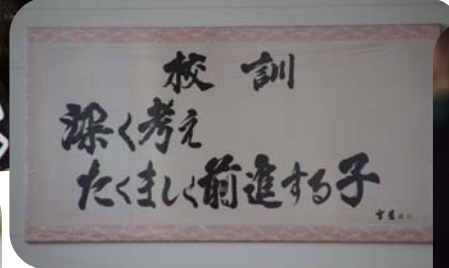 校訓
深く考え
たくましく前進する子